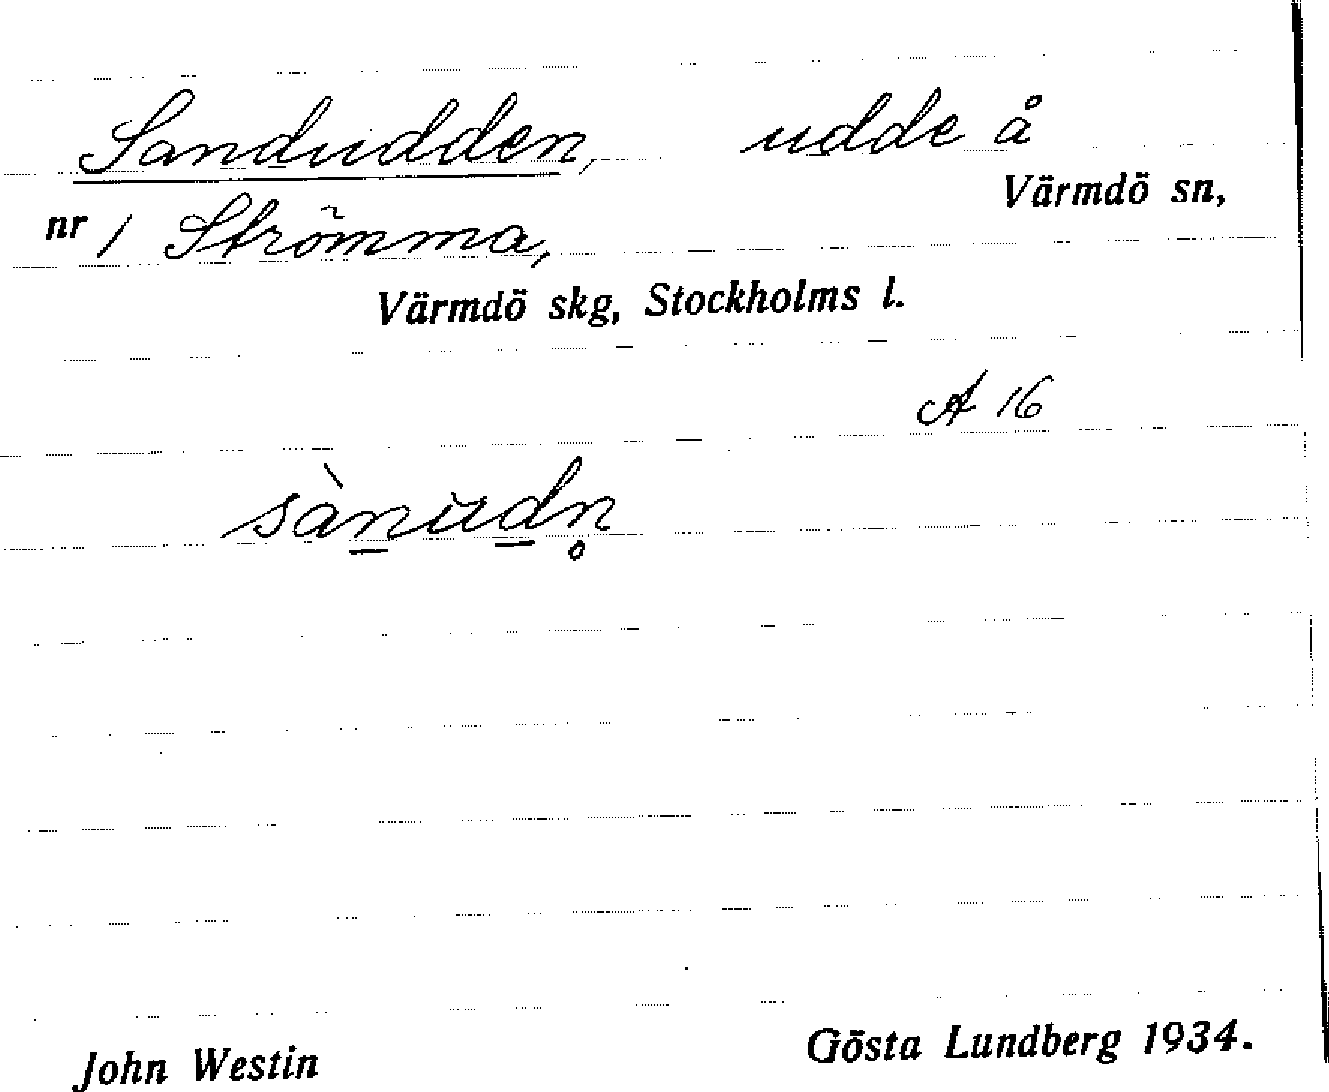 Sandudden, udde å
Värmdö sn,
nr 1 Strömma,
Värmdö skg, Stockholms l.
A 16
sànudn̥
John Westin
Gösta Lundberg 1934.